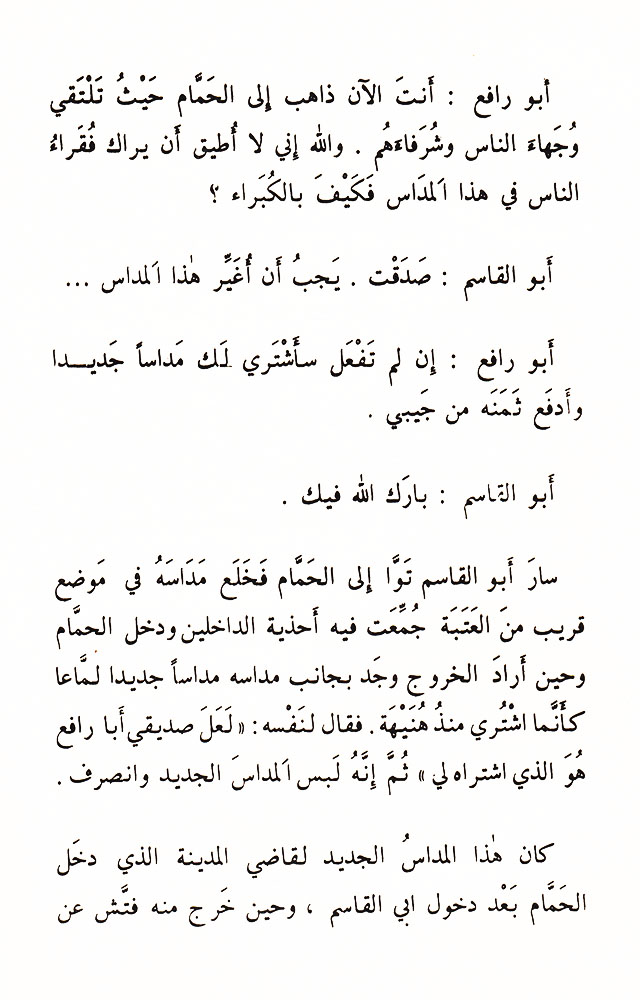 أبو رافع : أَنتَ الآن ذاهب إلى الحَمَّام حَيْثُ تَلْتَقي
وُجَهاءَ الناس وشُرَفاءَهُم . والله إِني لا أُطيق أَن يراك فُقَراءُ
الناس في هذا اَلمدَاس فَكَيْفَ بالكُبَراء ؟
أَبو القاسم : صَدَقْت . يَجبُ أَن أُغَيِّر هٰذا اَلمداس ...
أَبو رافع : إِن لم تَفْعَل سأَشْتَري لَك مَداساً جَديــدا
وأَدفَع ثَمَنَه من جَيبي .
أَبو القاسم : بارَك الله فيك .
سارَ أَبو القاسم تَوَّا إِلى الحَمَّام فَخَلَع مَدَاسَهُ في مَوضع
قريب منَ العَتَبَة جُمِّعَت فيه أَحذية الداخلين ودخل الحمَّام
وحين أَرادَ الخروج وجَد بجانب مداسه مداساً جديدا لمَّاعا
كأَنَّما اشْتُري منذُ هُنَيْهَة . فقال لنَفْسه : « لَعَلَ صديقي أَبا رافع
هُوَ الذي اشتراه لي » ثُمَّ إِنَّهُ لَبس اَلمداسَ الجديد وانصرف .
كان هٰذا المداسُ الجديد لقاضي المدينة الذي دخَل
الحَمَّام بَعْد دخول ابي القاسم ، وحين خَرج منه فتَّش عن